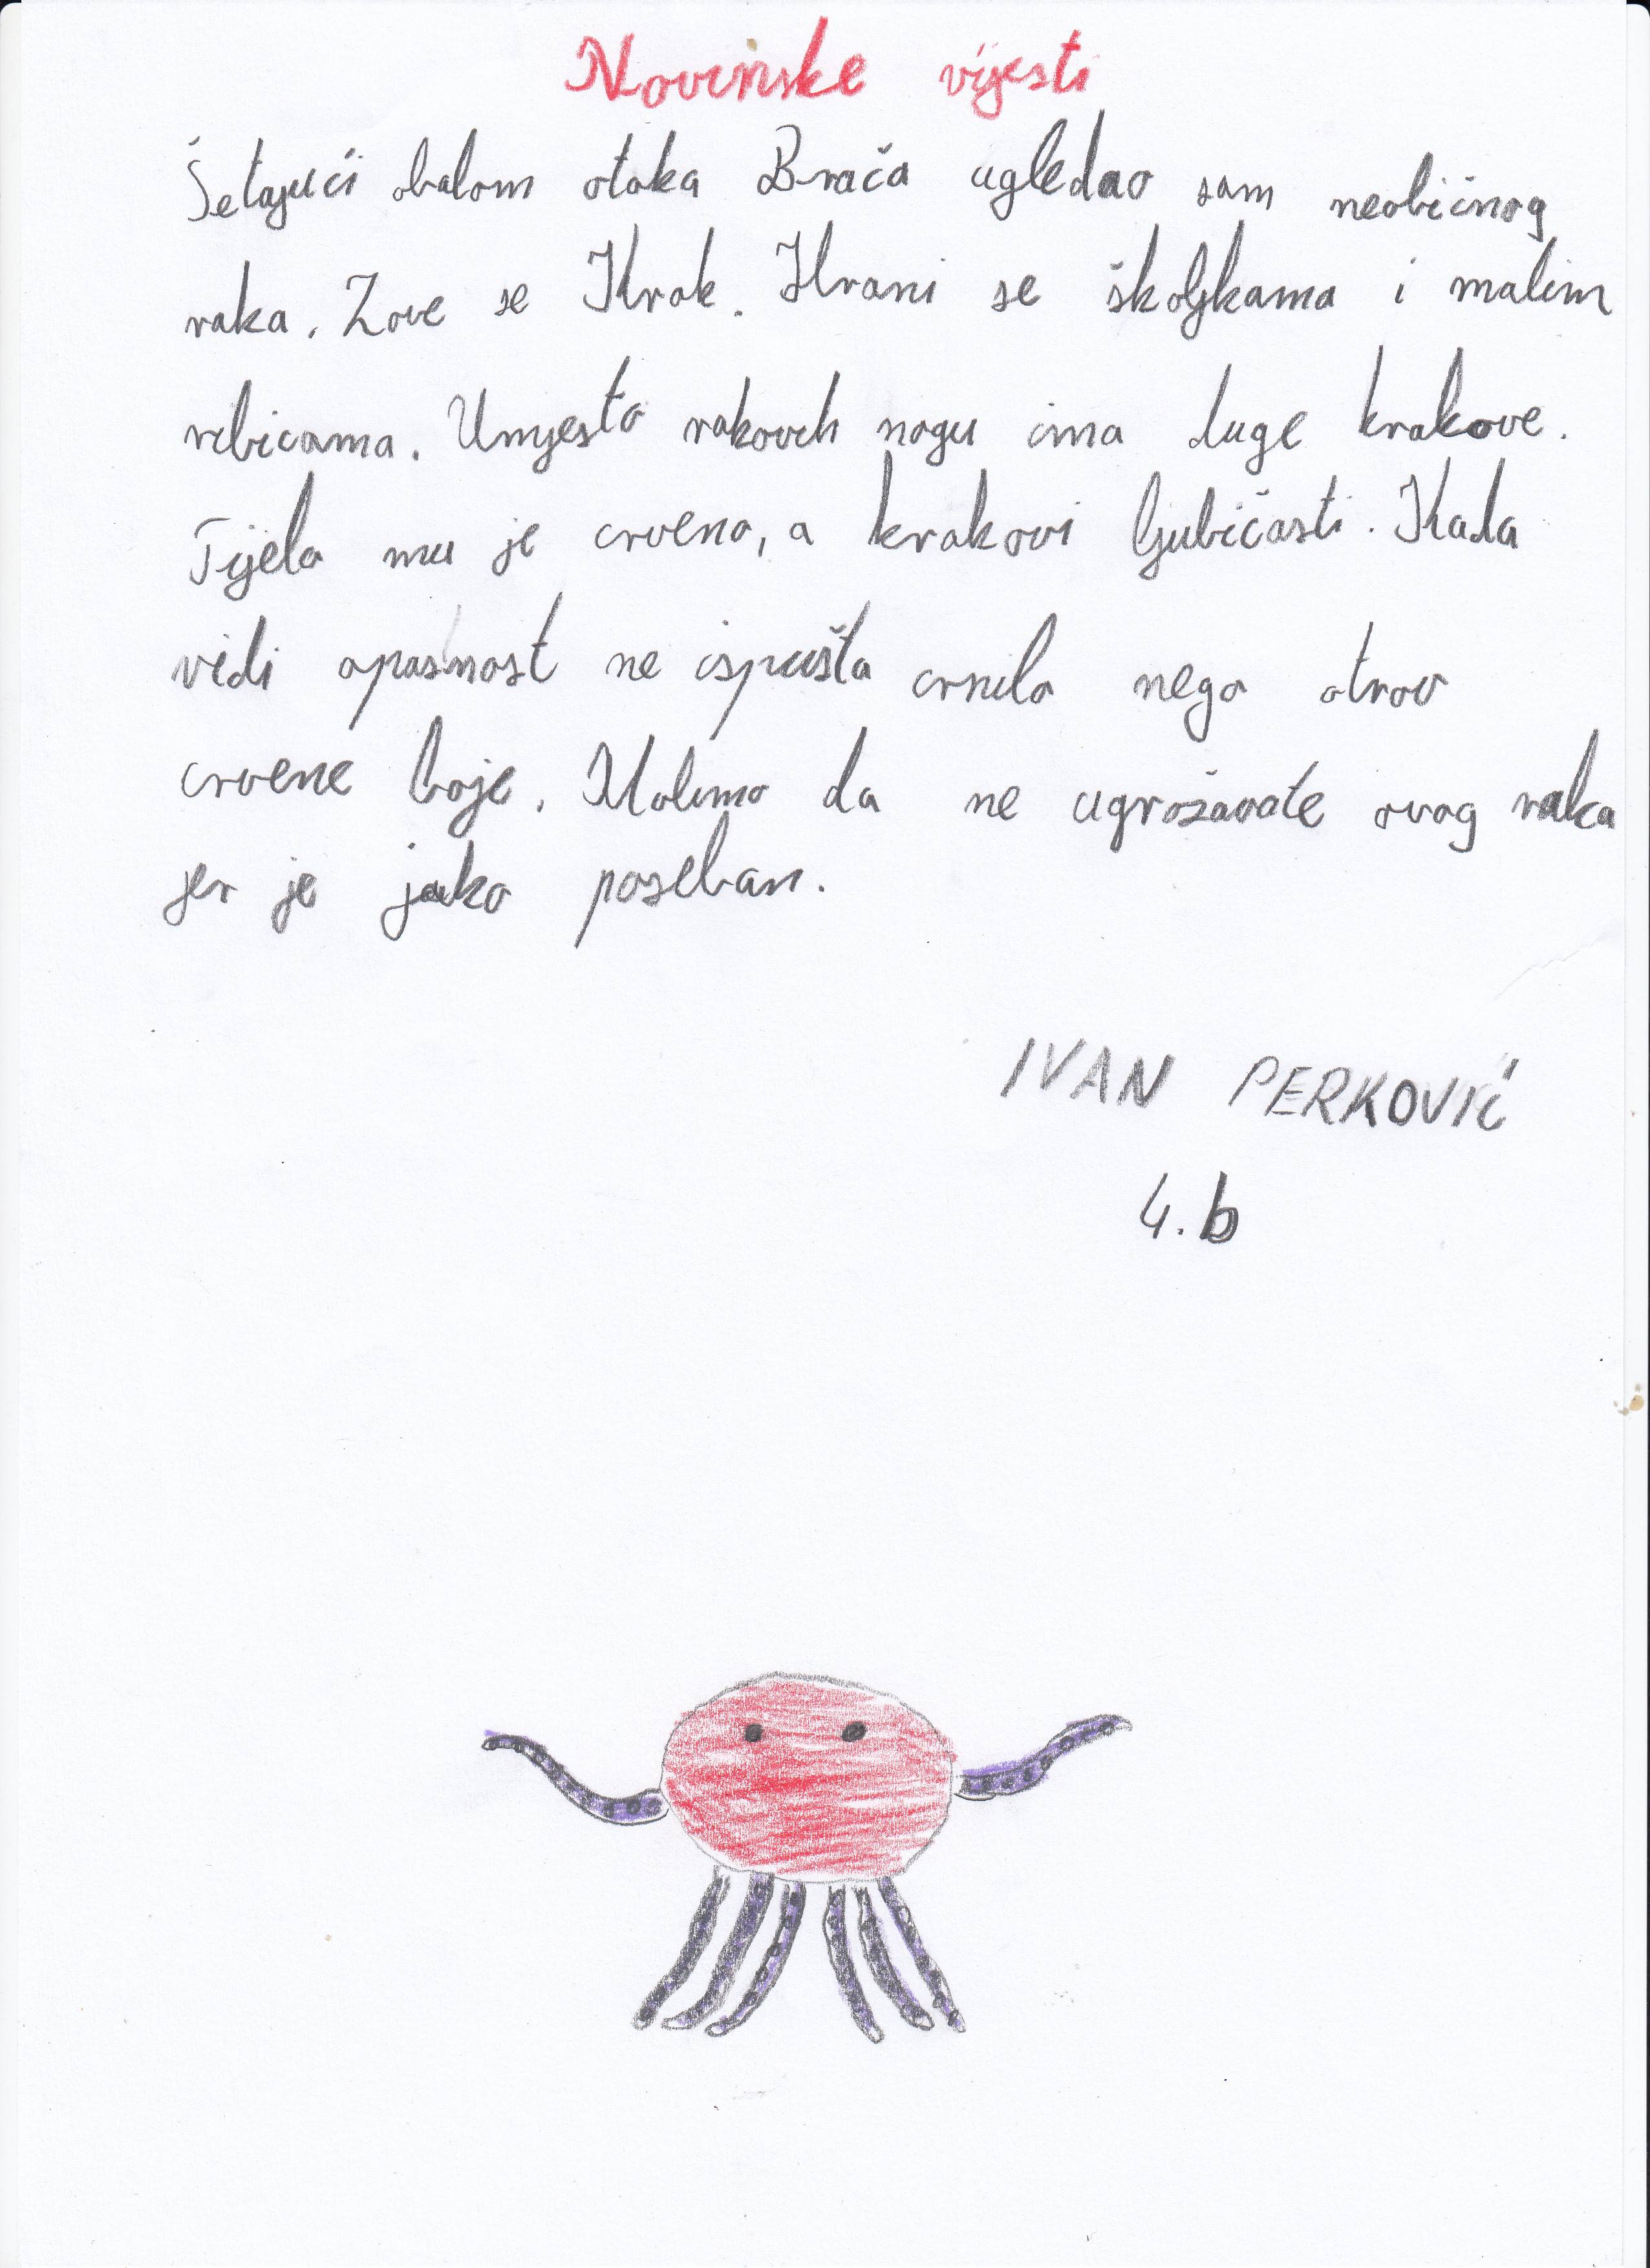 Novinske vijesti
Šetajući obalom otoka Brača ugledao sam neobičnog
raka. Zove se Krak. Hrani se školjkama i malim
ribicama. Umjesto rakovih nogu ima duge krakove.
Tijelo mu je crveno, a krakovi ljubičasti. Kada
vidi opasnost ne ispušta crnilo nego otrov
crvene boje. Molimo da ne ugrožavate ovog raka
jer je jako poseban.
IVAN PERKOVIĆ
4.b